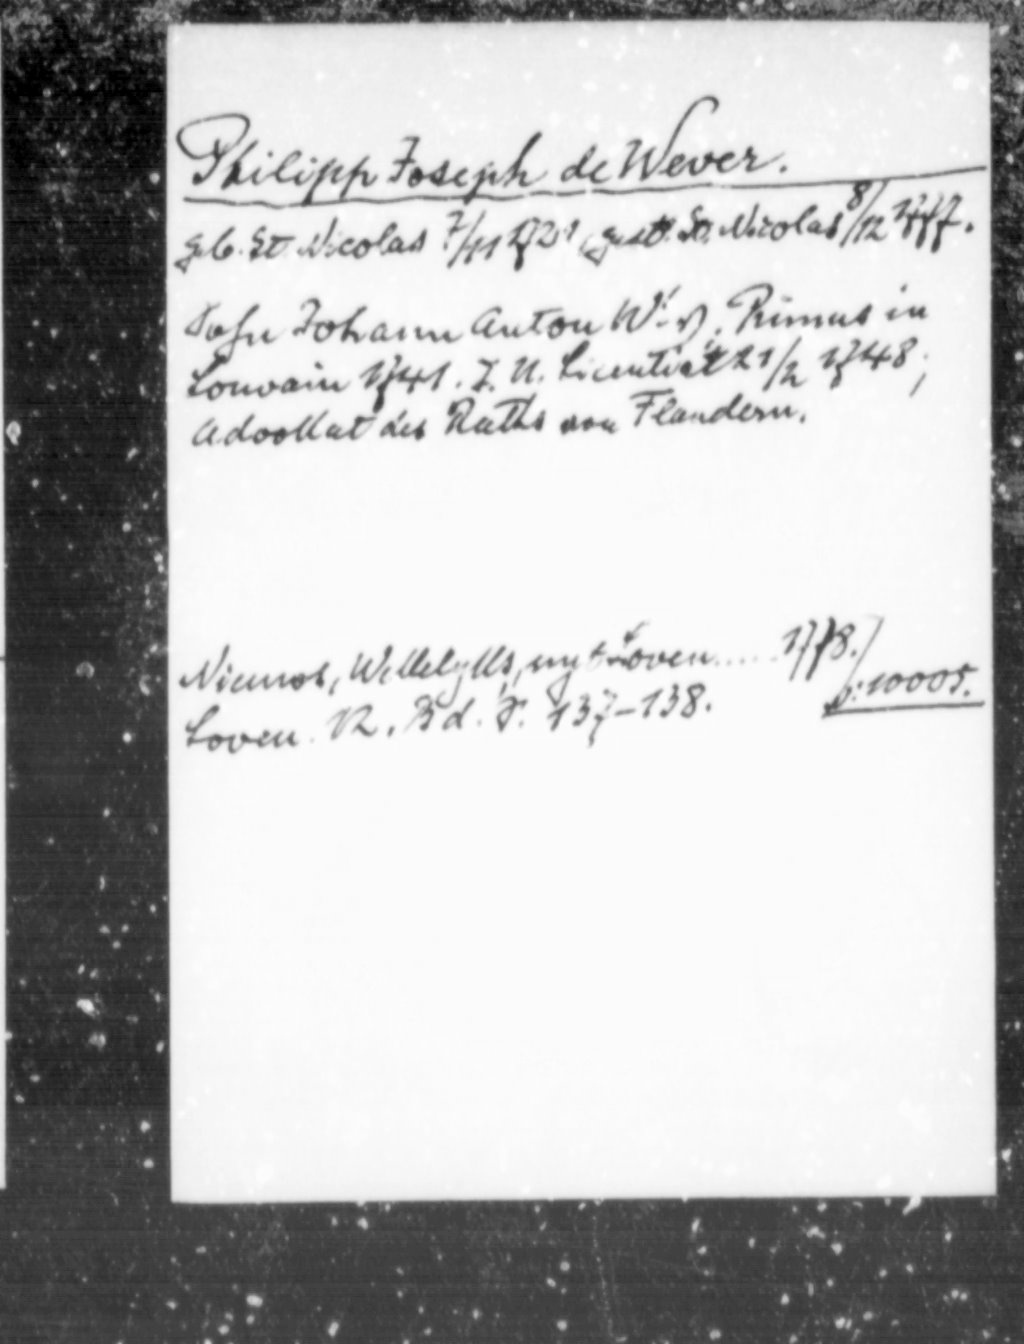 Philipp Joseph de Wever.
geb. St. Nicolas 7/11 1721, gest. St. Nicolas 8/12 1777.
Sohn Johann Anton W's. Primus in
Louvain 1741. J. U. Licentiat 21/2 1748;
Advokat des Raths von Flandern.
uyt Loven..... 1778./
p: 10005.
Loven. Bd. 137-138.